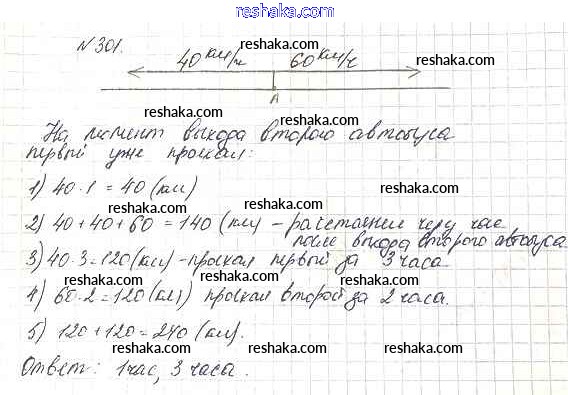 www.reshaka.com
№301.
reshaka.com
40 км/ч 60 км/ч
reshaka.com reshaka.com
А
reshaka.com reshaka.com
На момент выхода второго автобуса
первый уже проехал:
reshaka.com
1) 40·1=40 (км)
reshaka.com reshaka.com
2) 40+40+60=140 (км) - расстояние через час
после выхода второго автобуса
reshaka.com
3) 40·3=120 (км) - проехал первый за 3 часа
reshaka.com reshaka.com
4) 60·2=120 (км) проехал второй за 2 часа.
reshaka.com
5) 120+120=240 (км).
reshaka.com reshaka.com
Ответ: 1 час, 3 часа.
reshaka.com